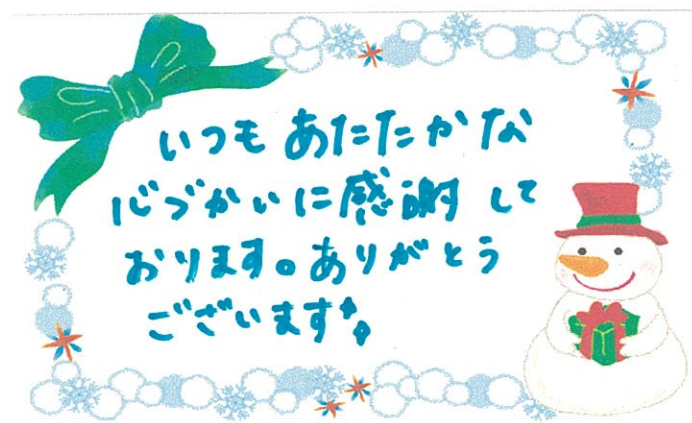 いつもあたたかな
心づかいに感謝して
おります。ありがとう
ございます